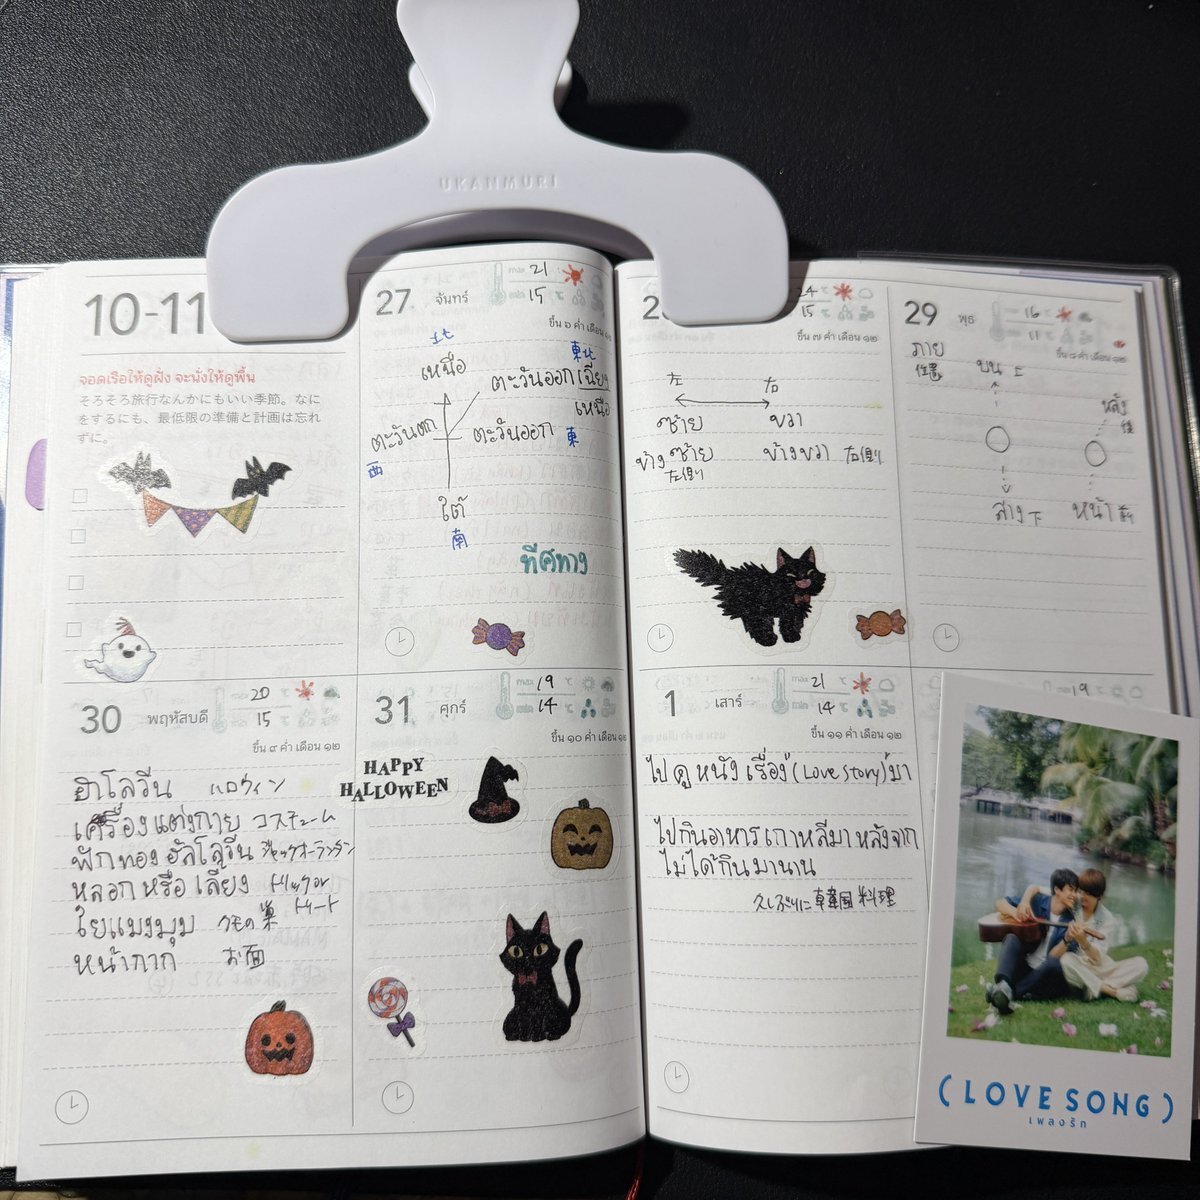 UKANMURI
10-11
จอดเรือให้ดูฝั่ง จะนั่งให้ดูพื้น
そろそろ旅行なんかにもいい季節。なに
をするにも、最低限の準備と計画は忘れ
ずに。
27 จันทร์
max 21
15
ขึ้น ๖ ค่ำ เดือน ๑๒
北
เหนือ
東北
ตะวันออกเฉียง
เหนือ
ตะวันตก
西
ตะวันออก 東
ใต้
南
ทิศทาง
15
ขึ้น ๗ ค่ำ เดือน ๑๒
左 右
ซ้าย ขวา
ข้างซ้าย ข้างขวา 右側り
左側り
29 พุธ
16
11
ขึ้น ๘ ค่ำ เดือน ๑๒
ภาย
位置
บน 上
หลัง
後
ล่าง 下
หน้า 前
30 พฤหัสบดี
20
15
ขึ้น ๙ ค่ำ เดือน ๑๒
ฮาโลวีน ハロウィン
เครื่องแต่งกาย コスチューム
ฟักทองฮัลโลวีน ジャックオーランタン
หลอกหรือเลี้ยง トリック or
トリート
ใยแมงมุม クモの巣
หน้ากาก お面
31 ศุกร์
max 19 °C
14 °C
ขึ้น ๑๐ ค่ำ เดือน ๑๒
HAPPY
HALLOWEEN
1 เสาร์
max 21
14
ขึ้น ๑๑ ค่ำ เดือน ๑๒
ไปดูหนังเรื่อง(Love Story)มา
ไปกินอาหารเกาหลีมาหลังจาก
ไม่ได้กินมานาน
久しぶりに韓国料理
19
(LOVE SONG)
เพลงรัก